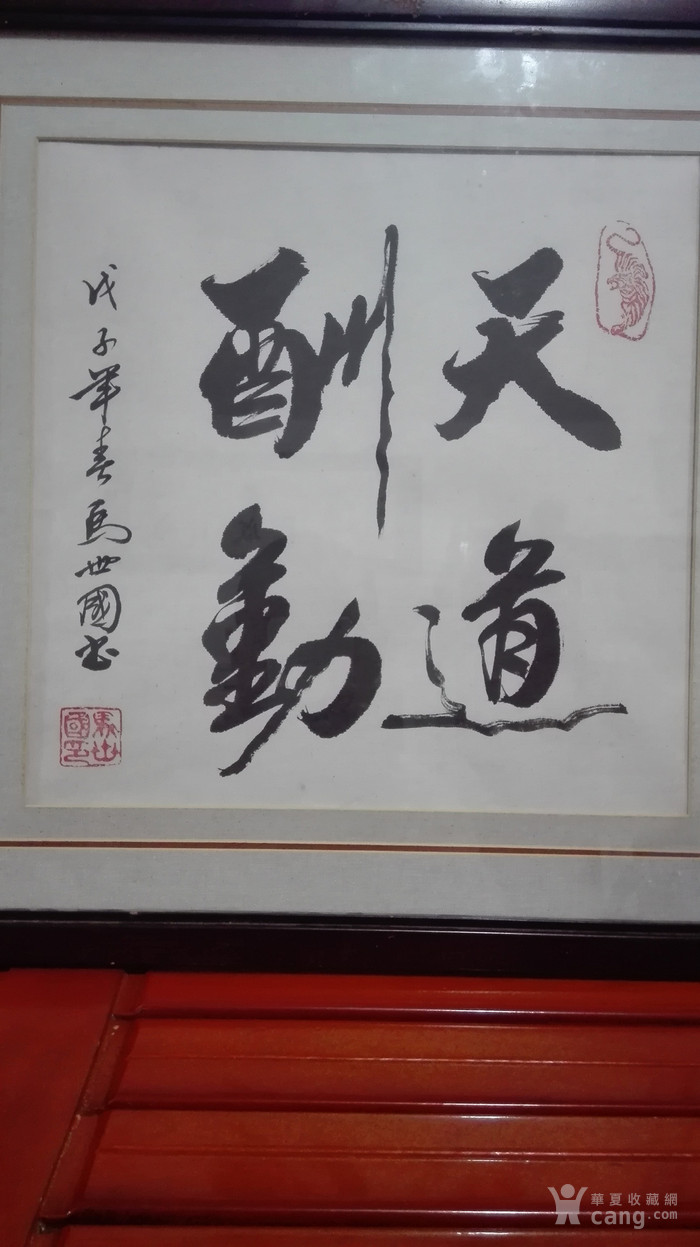 天道
酬勤
戊子年春馬世國書
馬世國印
華夏收藏網
cang.com